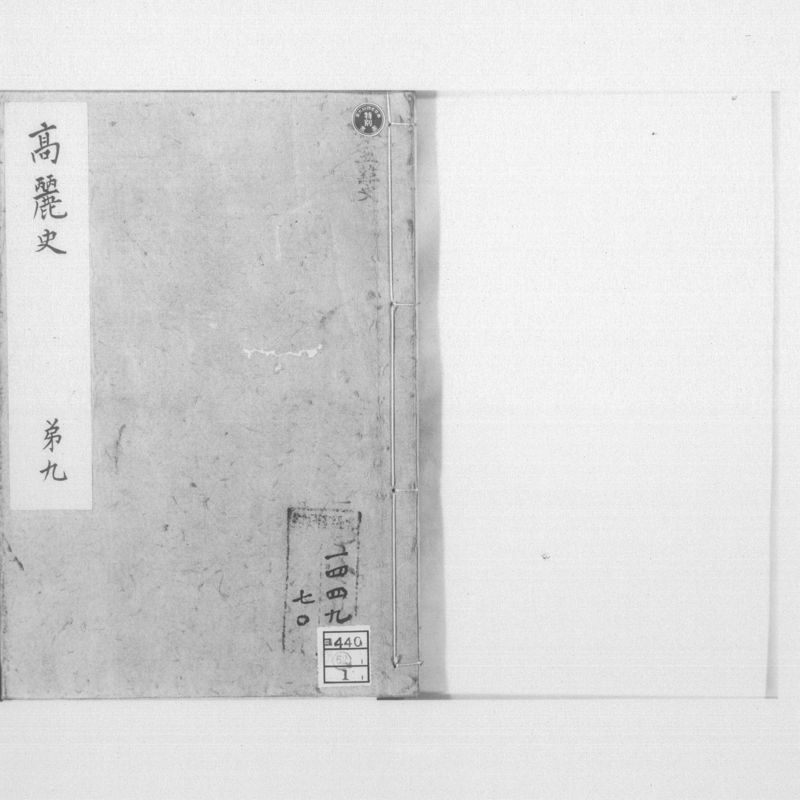 高麗史
弟九
特別
一四四九
七〇
ヨ440
1